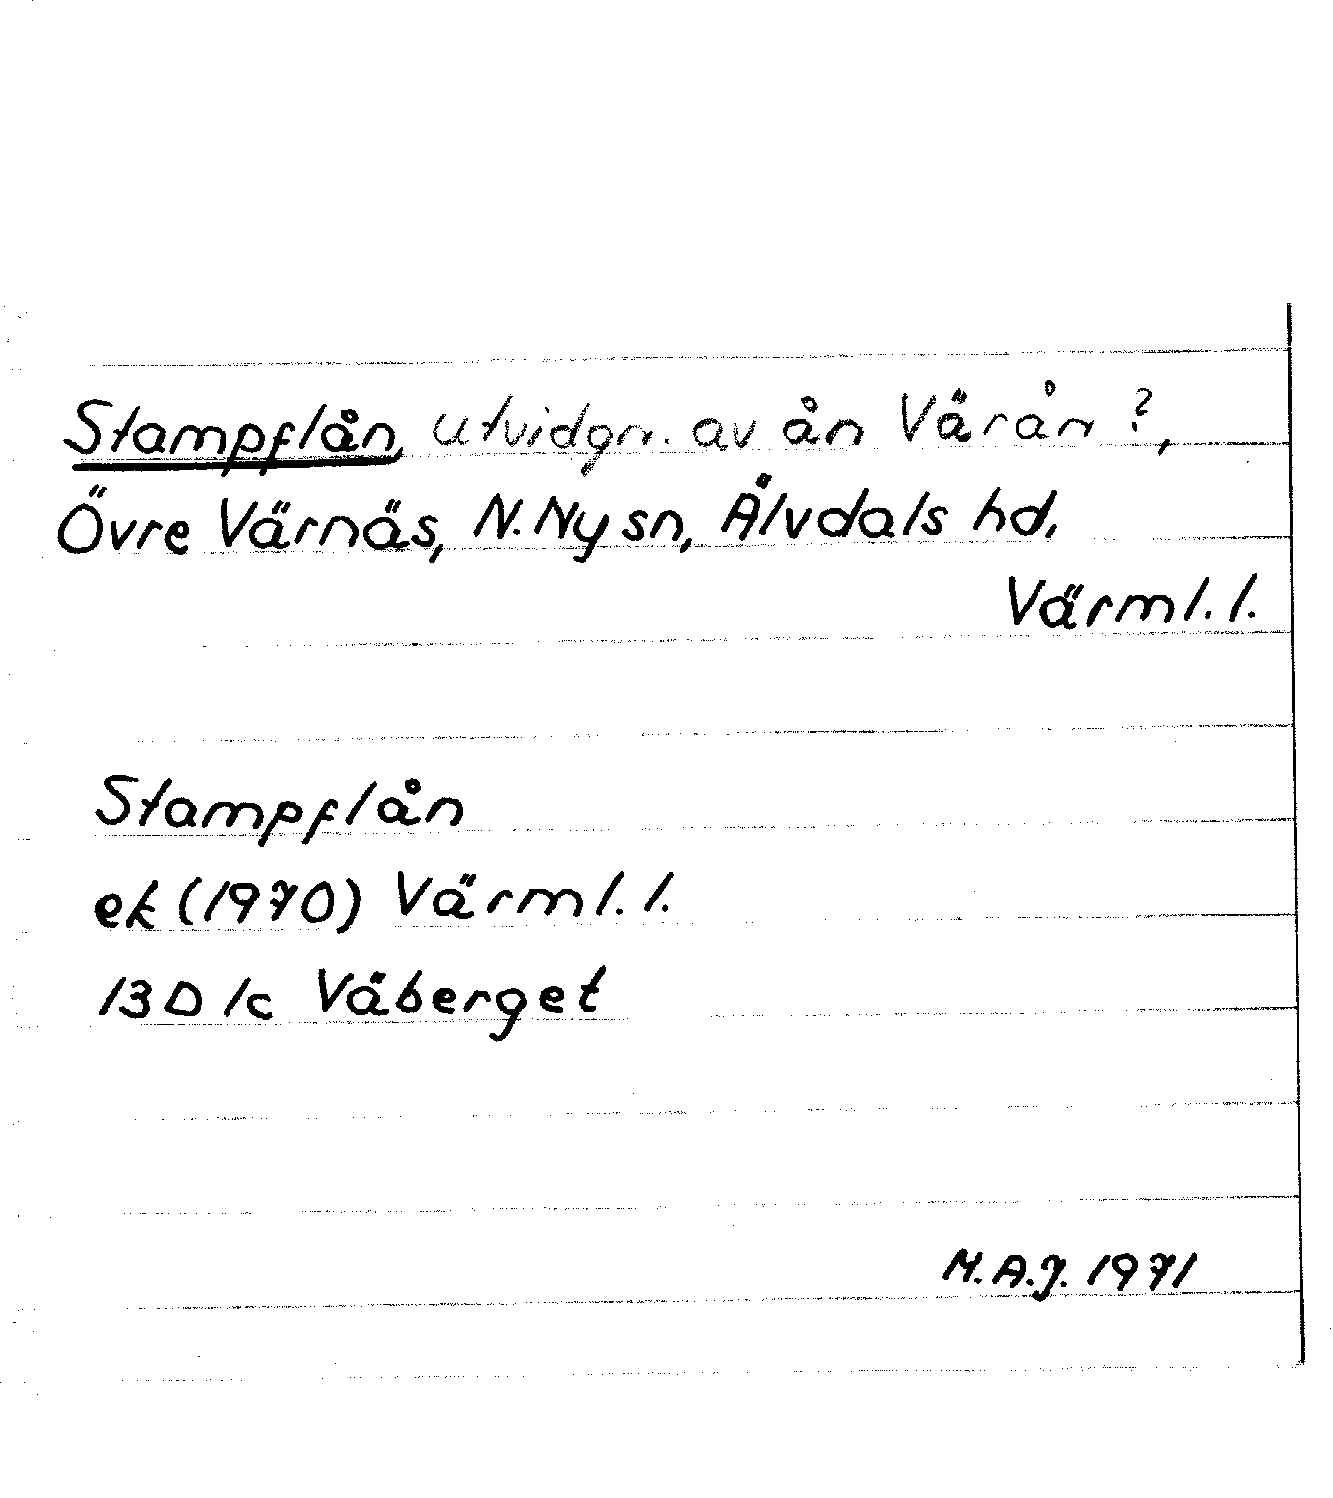 Stampflån, utvidgn. av ån Värån ?,
Övre Värnäs, N. Ny sn, Älvdals hd,
Värml. l.
Stampflån
ek (1970) Värml. l.
13D 1c Våberget
M.A.J. 1971